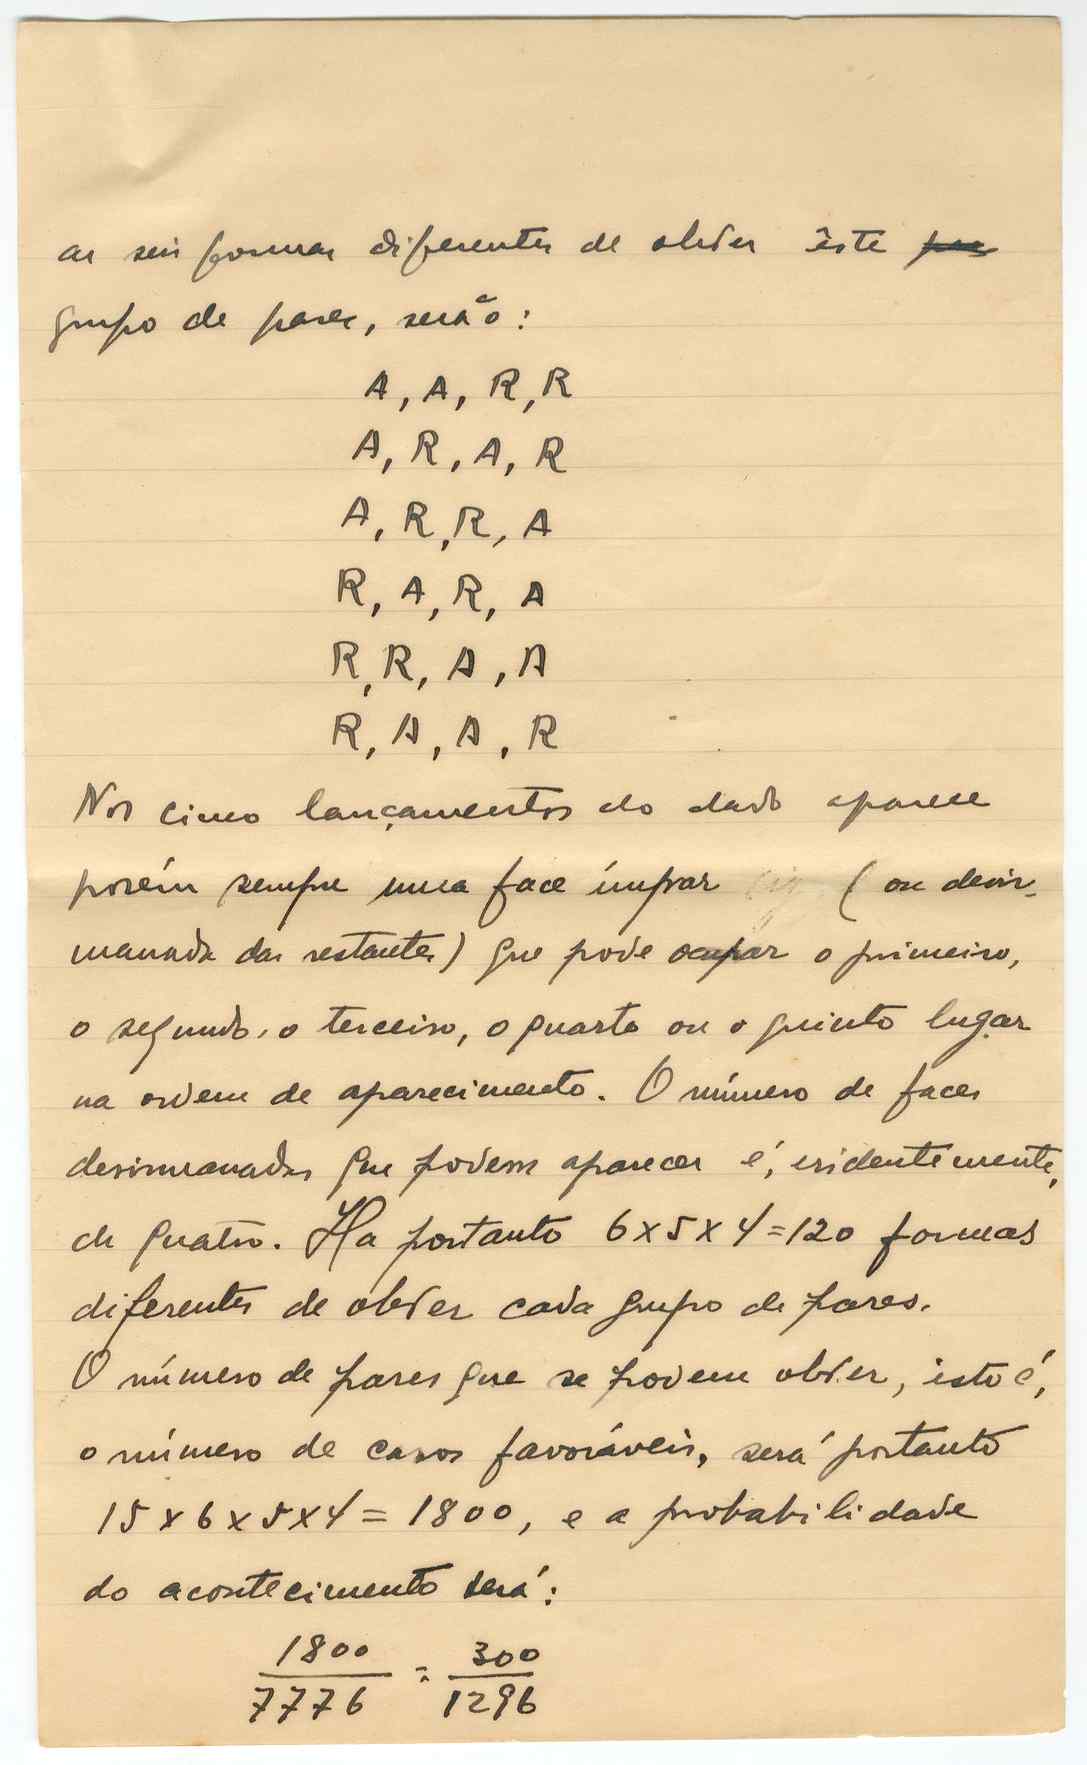 as seis formas diferentes de obter êste
grupo de pares, serão:
A, A, R, R
A, R, A, R
A, R, R, A
R, A, R, A
R, R, A, A
R, A, A, R
Nos cinco lançamentos do dado aparece
porém sempre uma face ímpar (ou desir-
manada das restantes) que pode ocupar o primeiro,
o segundo, o terceiro, o quarto ou o quinto lugar
na ordem de aparecimento. O número de faces
desirmanadas que podem aparecer é, evidentemente,
de quatro. Ha portanto 6 x 5 x 4 = 120 formas
diferentes de obter cada grupo de pares.
O número de pares que se podem obter, isto é,
o número de casos favoráveis, será portanto
15 x 6 x 5 x 4 = 1800, e a probabilidade
do acontecimento será:
1800/7776 = 300/1296